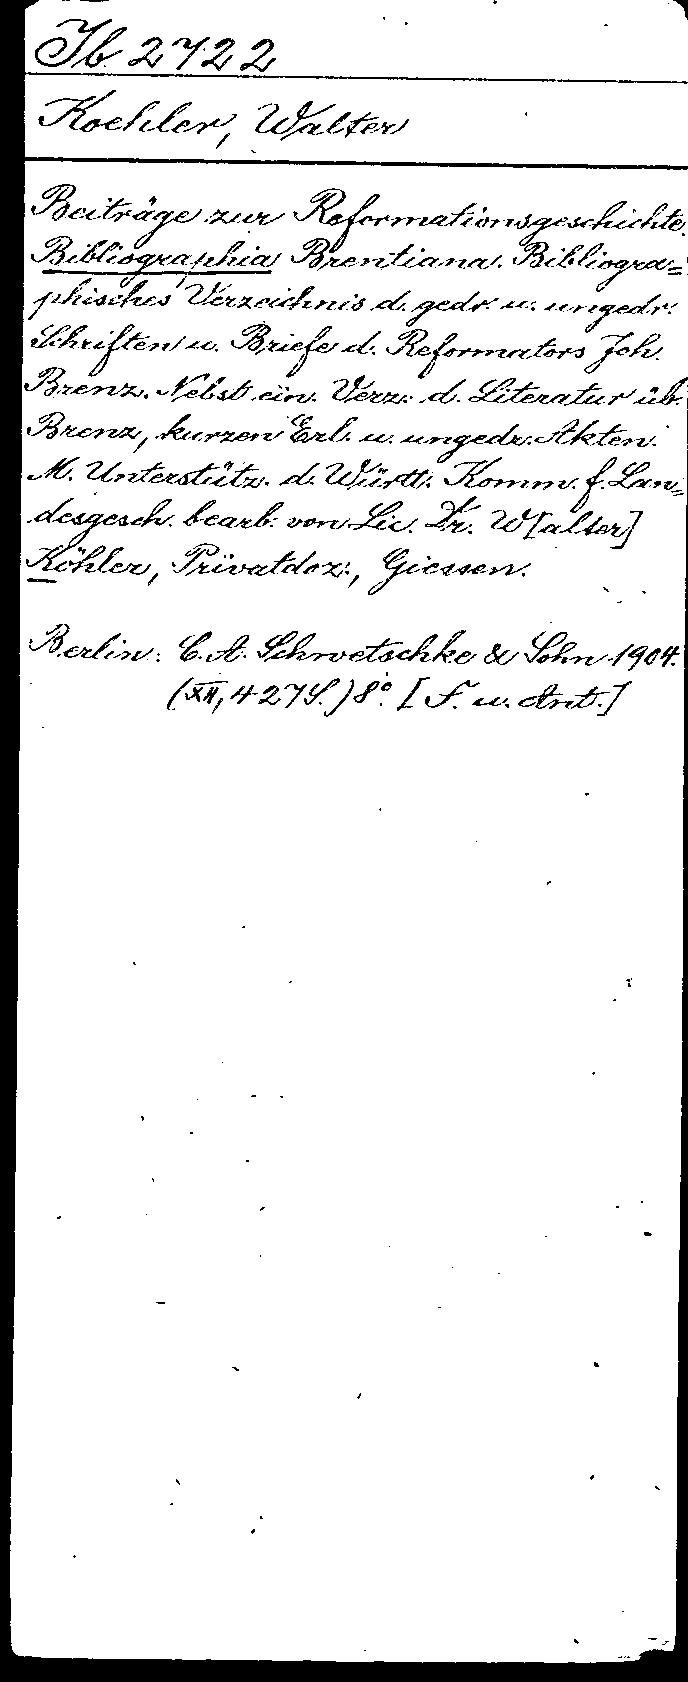 Ib 2722
Koehler, Walter
Beiträge zur Reformationsgeschichte.
Bibliographia Brentiana. Bibliogra=
phisches Verzeichnis d. gedr. u. ungedr.
Schriften u. Briefe d. Reformators Joh.
Brenz. Nebst ein. Verz. d. Literatur üb.
Brenz, kurzen Erl. u. ungedr. Akten.
M. Unterstütz. d. Württ. Komm. f. Lan=
desgesch. bearb. von Lic. Dr. W[alter]
Köhler, Privatdoz., Giessen.
Berlin: C. A. Schwetschke & Sohn 1904.
(XII, 427 S.) 8°. [F. u. Ant.]